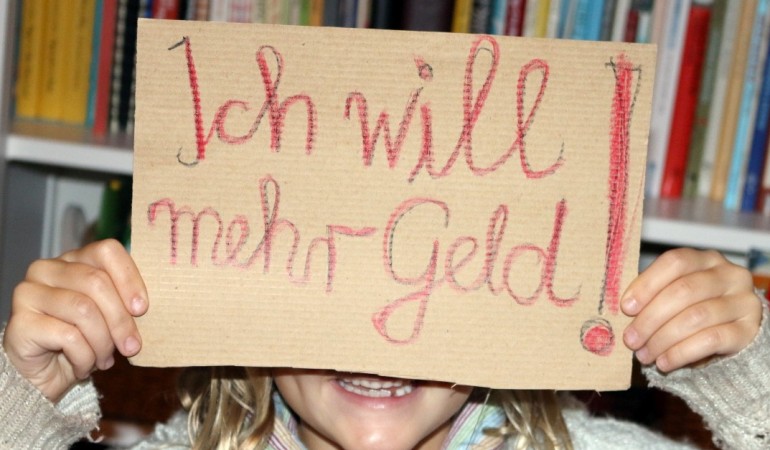 Ich will
mehr Geld!